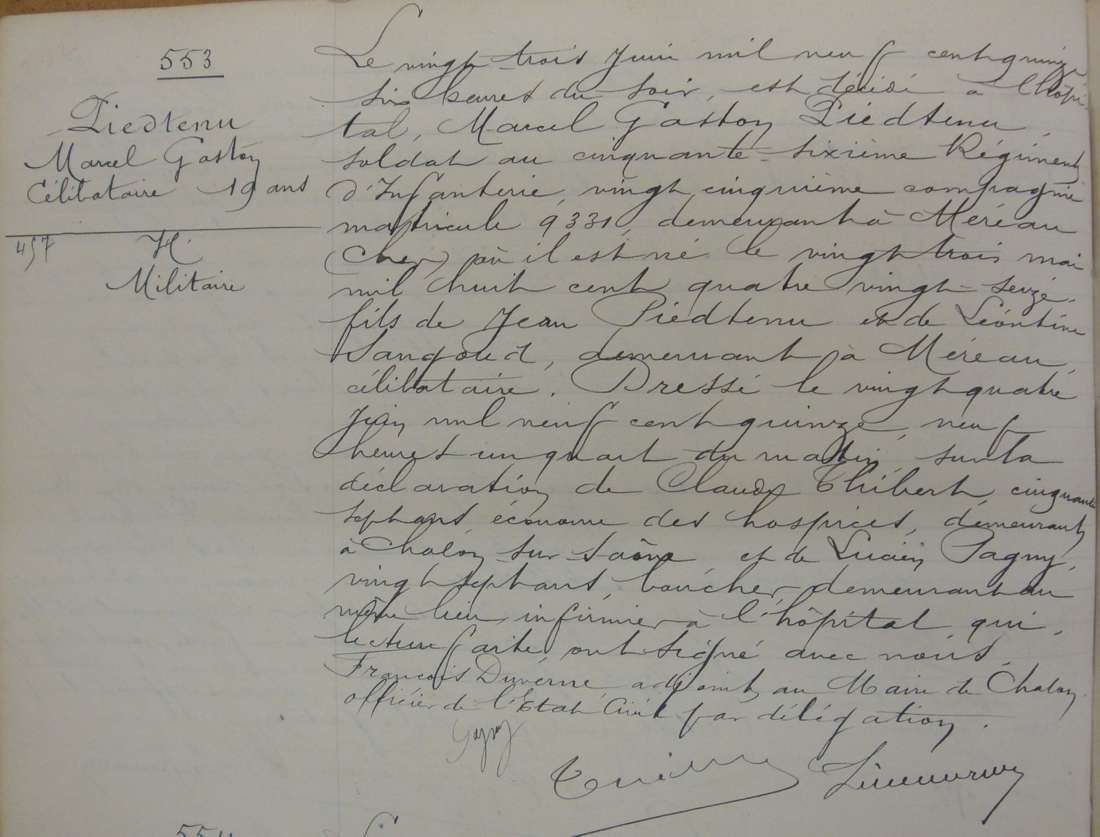 553
Piedtenu
Marcel Gaston
Célibataire 19 ans
457
H.
Militaire
Le vingt-trois Juin mil neuf cent quinze
six heures du soir, est décédé à l'hôpi-
tal, Marcel Gaston Piedtenu,
soldat au cinquante-sixième Régiment
d'Infanterie, vingt cinquième compagnie
matricule 9331, demeurant à Méreau
(Cher) où il est né le vingt trois mai
mil huit cent quatre vingt-seize,
fils de Jean Piedtenu et de Léontine
Sangoud, demeurant à Méreau,
célibataire. Dressé le vingt quatre
Juin mil neuf cent quinze, neuf
heures un quart du matin sur la
déclaration de Claude Thibert, cinquante
sept ans, économe des hospices, demeurant
à Chalon sur Saône et de Lucien Pagny,
vingt sept ans, boucher, demeurant au
même lieu, infirmier à l'hôpital, qui,
lecture faite, ont signé avec nous,
François Duverne adjoint au Maire de Chalon,
officier de l'Etat Civil par délégation.
Pagny
554